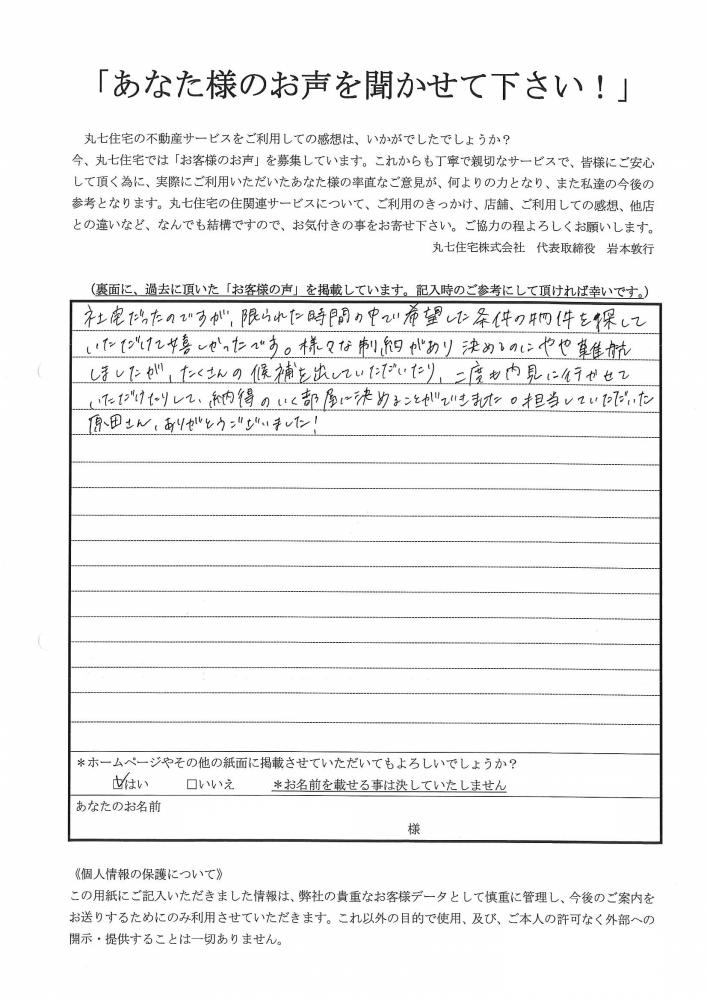 「あなた様のお声を聞かせて下さい！」
丸七住宅の不動産サービスをご利用しての感想は、いかがでしたでしょうか？
今、丸七住宅では「お客様のお声」を募集しています。これからも丁寧で親切なサービスで、皆様にご安心
して頂く為に、実際にご利用いただいたあなた様の率直なご意見が、何よりの力となり、また私達の今後の
参考となります。丸七住宅の住関連サービスについて、ご利用のきっかけ、店舗、ご利用しての感想、他店
との違いなど、なんでも結構ですので、お気付きの事をお寄せ下さい。ご協力の程よろしくお願いします。
丸七住宅株式会社　代表取締役　岩本敦行
（裏面に、過去に頂いた「お客様の声」を掲載しています。記入時のご参考にして頂ければ幸いです。）
社宅だったのですが、限られた時間の中で希望した条件の物件を探して
いただけて嬉しかったです。様々な制約があり決めるのにやや難航
しましたが、たくさんの候補を出していただいたり、二度も内見に行かせて
いただけたりして、納得のいく部屋に決めることができました。担当していただいた
原田さん、ありがとうございました！
＊ホームページやその他の紙面に掲載させていただいてもよろしいでしょうか？
☑はい　□いいえ　＊お名前を載せる事は決していたしません
あなたのお名前
様
《個人情報の保護について》
この用紙にご記入いただきました情報は、弊社の貴重なお客様データとして慎重に管理し、今後のご案内を
お送りするためにのみ利用させていただきます。これ以外の目的で使用、及び、ご本人の許可なく外部への
開示・提供することは一切ありません。